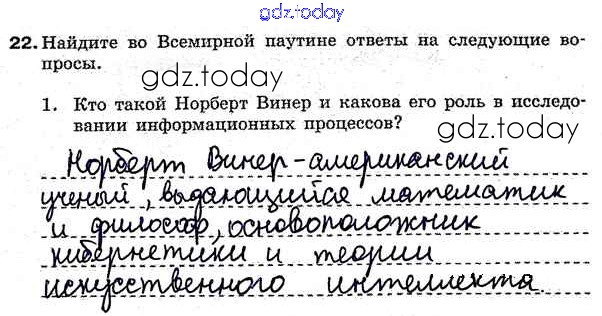 gdz.today
22. Найдите во Всемирной паутине ответы на следующие во-
просы.
gdz.today
1. Кто такой Норберт Винер и какова его роль в исследо-
вании информационных процессов?
gdz.today
Норберт Винер-американский
ученый, выдающийся математик
и философ, основоположник
кибернетики и теории
искусственного интеллекта.